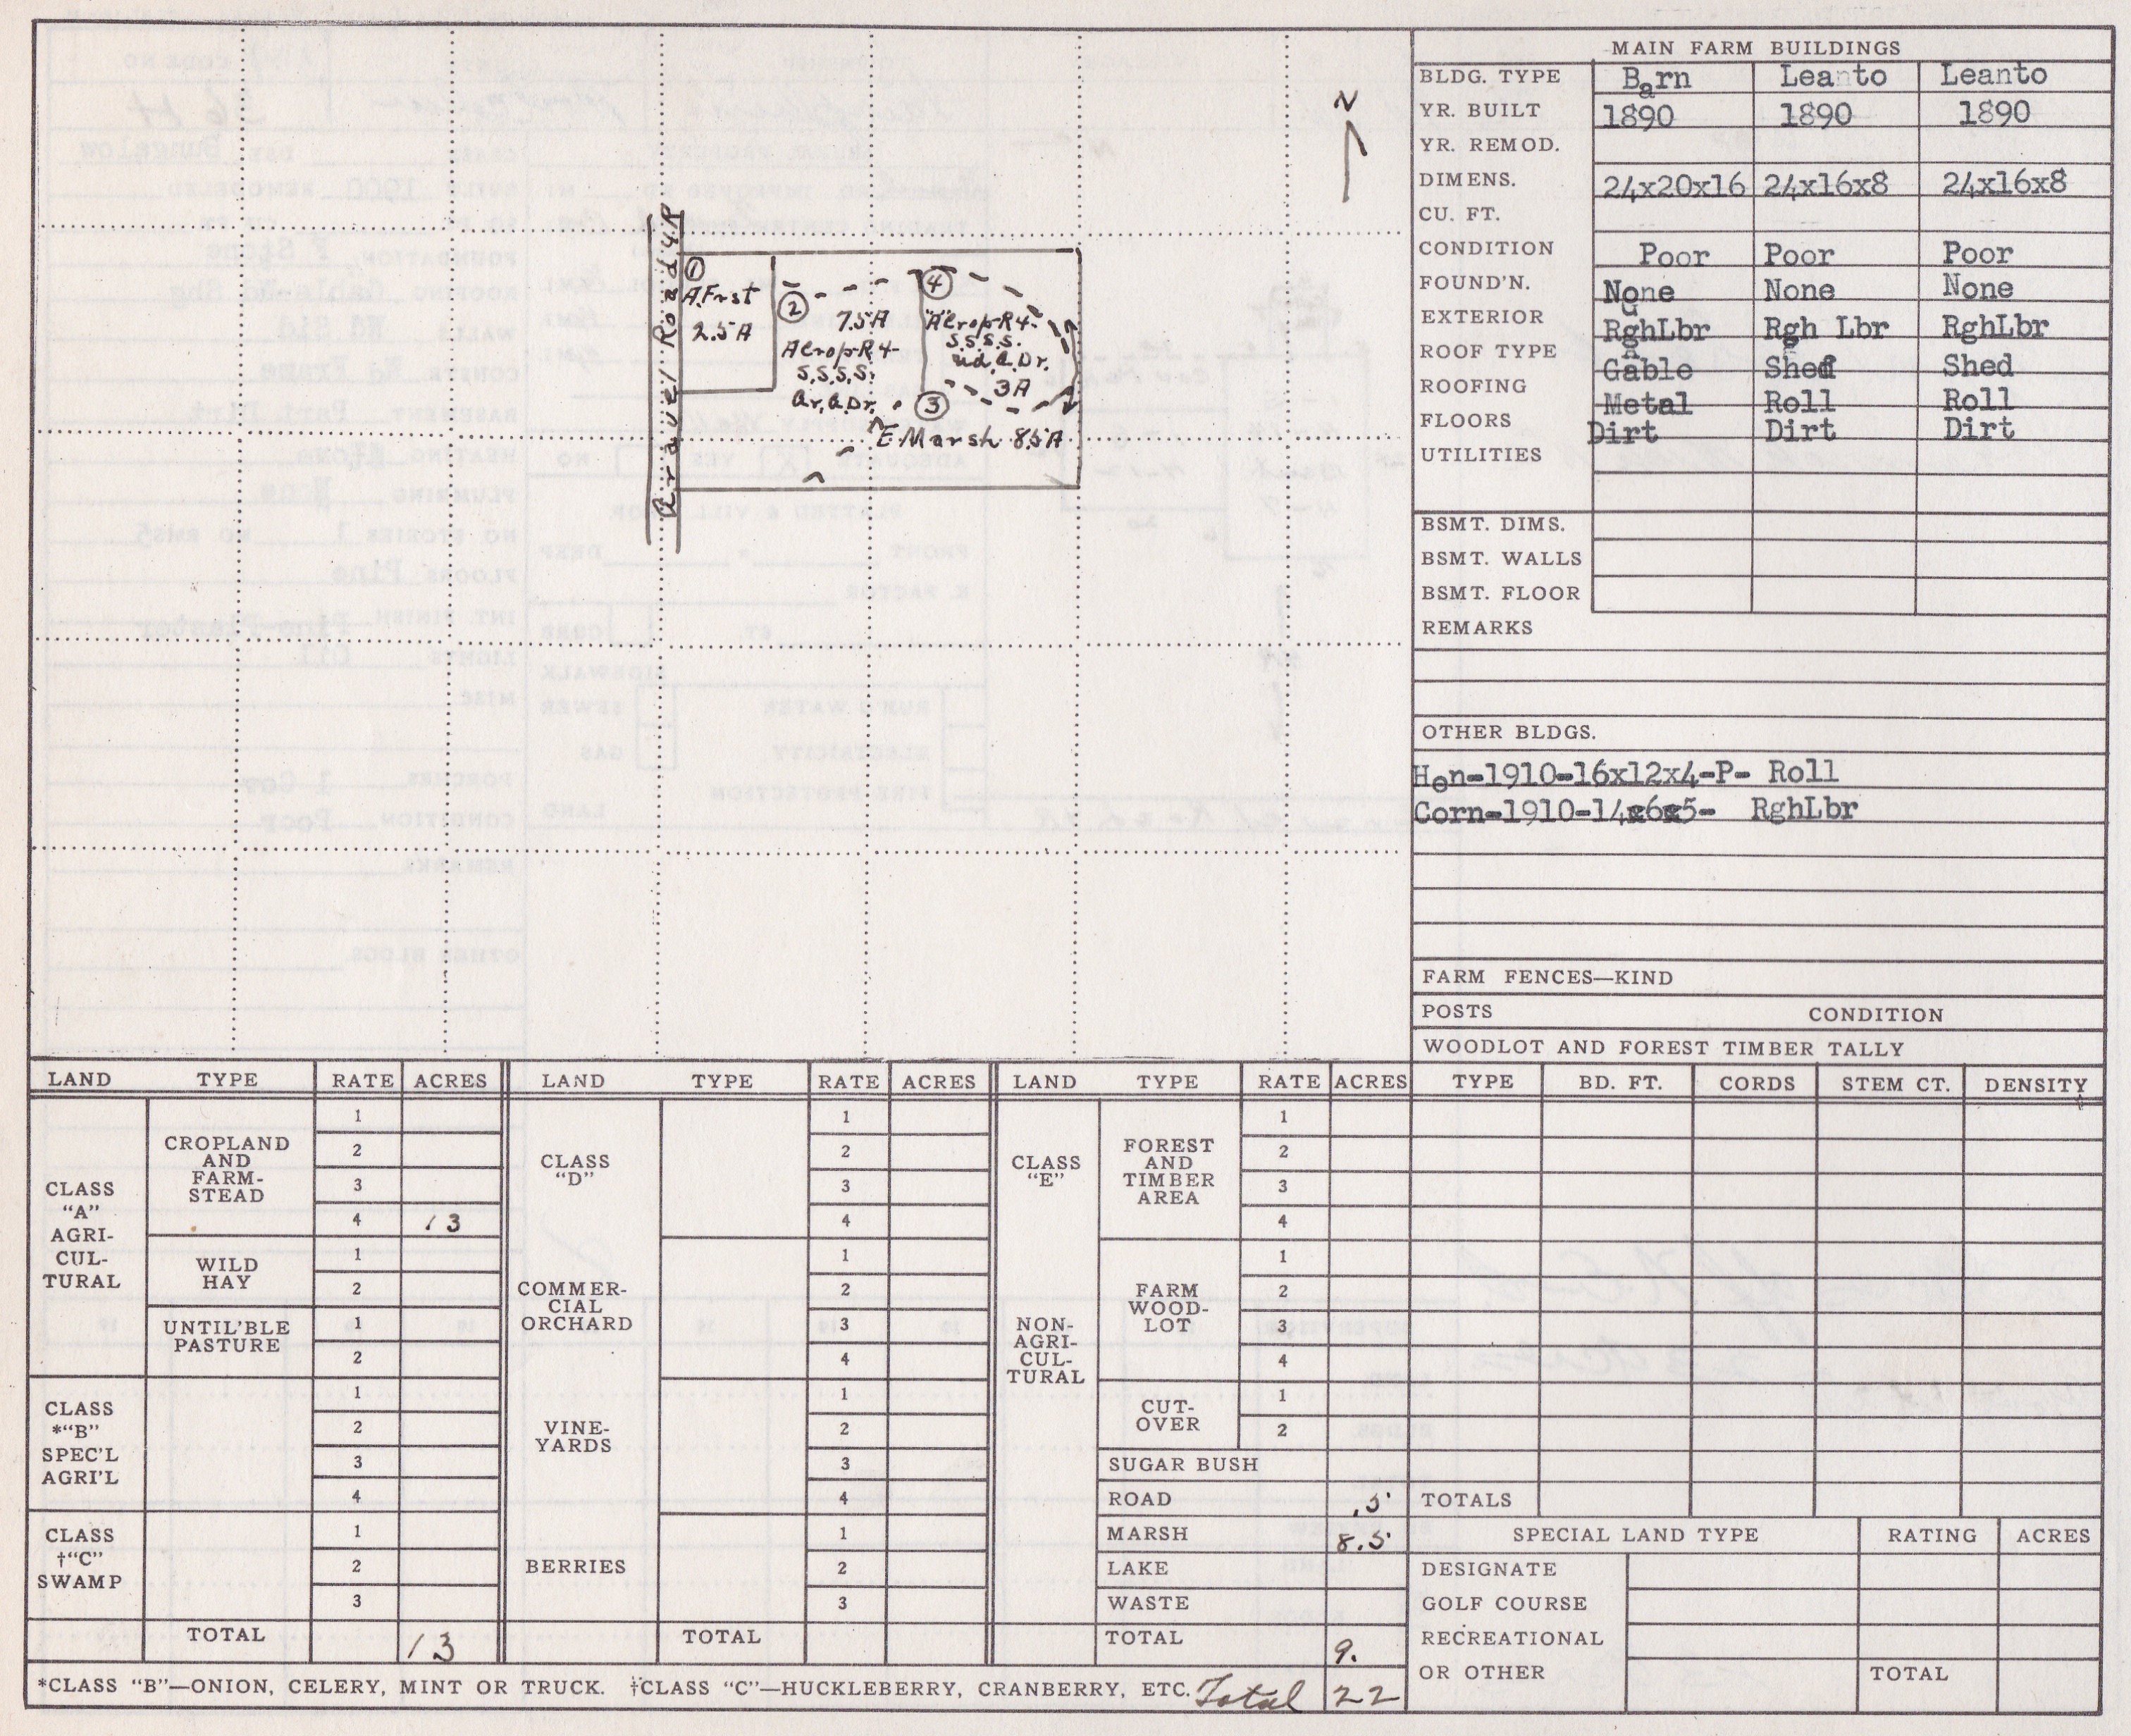 N
Gravel Road 4R
①
A.Frst
2.5A
②
7.5A
Acrop-R4-
S.S.S.S.
Gr.a.Dr.
④
Acrop-R4-
S.S.S.S.
Ud.a.Dr.
3A
③
E Marsh 8.5A
MAIN FARM BUILDINGS
BLDG. TYPE Barn Leanto Leanto
YR. BUILT 1890 1890 1890
YR. REMOD.
DIMENS. 24x20x16 24x16x8 24x16x8
CU. FT.
CONDITION Poor Poor Poor
FOUND'N. None None None
EXTERIOR RghLbr Rgh Lbr RghLbr
ROOF TYPE Gable Shed Shed
ROOFING Metal Roll Roll
FLOORS Dirt Dirt Dirt
UTILITIES
BSMT. DIMS.
BSMT. WALLS
BSMT. FLOOR
REMARKS
OTHER BLDGS.
Hen-1910-16x12x4-P- Roll
Corn-1910-14x6x5- RghLbr
FARM FENCES—KIND
POSTS CONDITION
WOODLOT AND FOREST TIMBER TALLY
TYPE BD. FT. CORDS STEM CT. DENSITY
TOTALS
SPECIAL LAND TYPE RATING ACRES
DESIGNATE
GOLF COURSE
RECREATIONAL
OR OTHER TOTAL
LAND TYPE RATE ACRES
CLASS
"A"
AGRI-
CUL-
TURAL
CROPLAND
AND
FARM-
STEAD
1
2
3
4 13
WILD
HAY
1
2
UNTIL'BLE
PASTURE
1
2
CLASS
*"B"
SPEC'L
AGRI'L
1
2
3
4
CLASS
†"C"
SWAMP
1
2
3
TOTAL 13
LAND TYPE RATE ACRES
CLASS
"D"
1
2
3
4
COMMER-
CIAL
ORCHARD
1
2
3
4
VINE-
YARDS
1
2
3
4
BERRIES
1
2
3
TOTAL
LAND TYPE RATE ACRES
CLASS
"E"
NON-
AGRI-
CUL-
TURAL
FOREST
AND
TIMBER
AREA
1
2
3
4
FARM
WOOD-
LOT
1
2
3
4
CUT-
OVER
1
2
SUGAR BUSH
ROAD .5
MARSH 8.5
LAKE
WASTE
TOTAL 9.
*CLASS "B"—ONION, CELERY, MINT OR TRUCK. †CLASS "C"—HUCKLEBERRY, CRANBERRY, ETC. Total 22